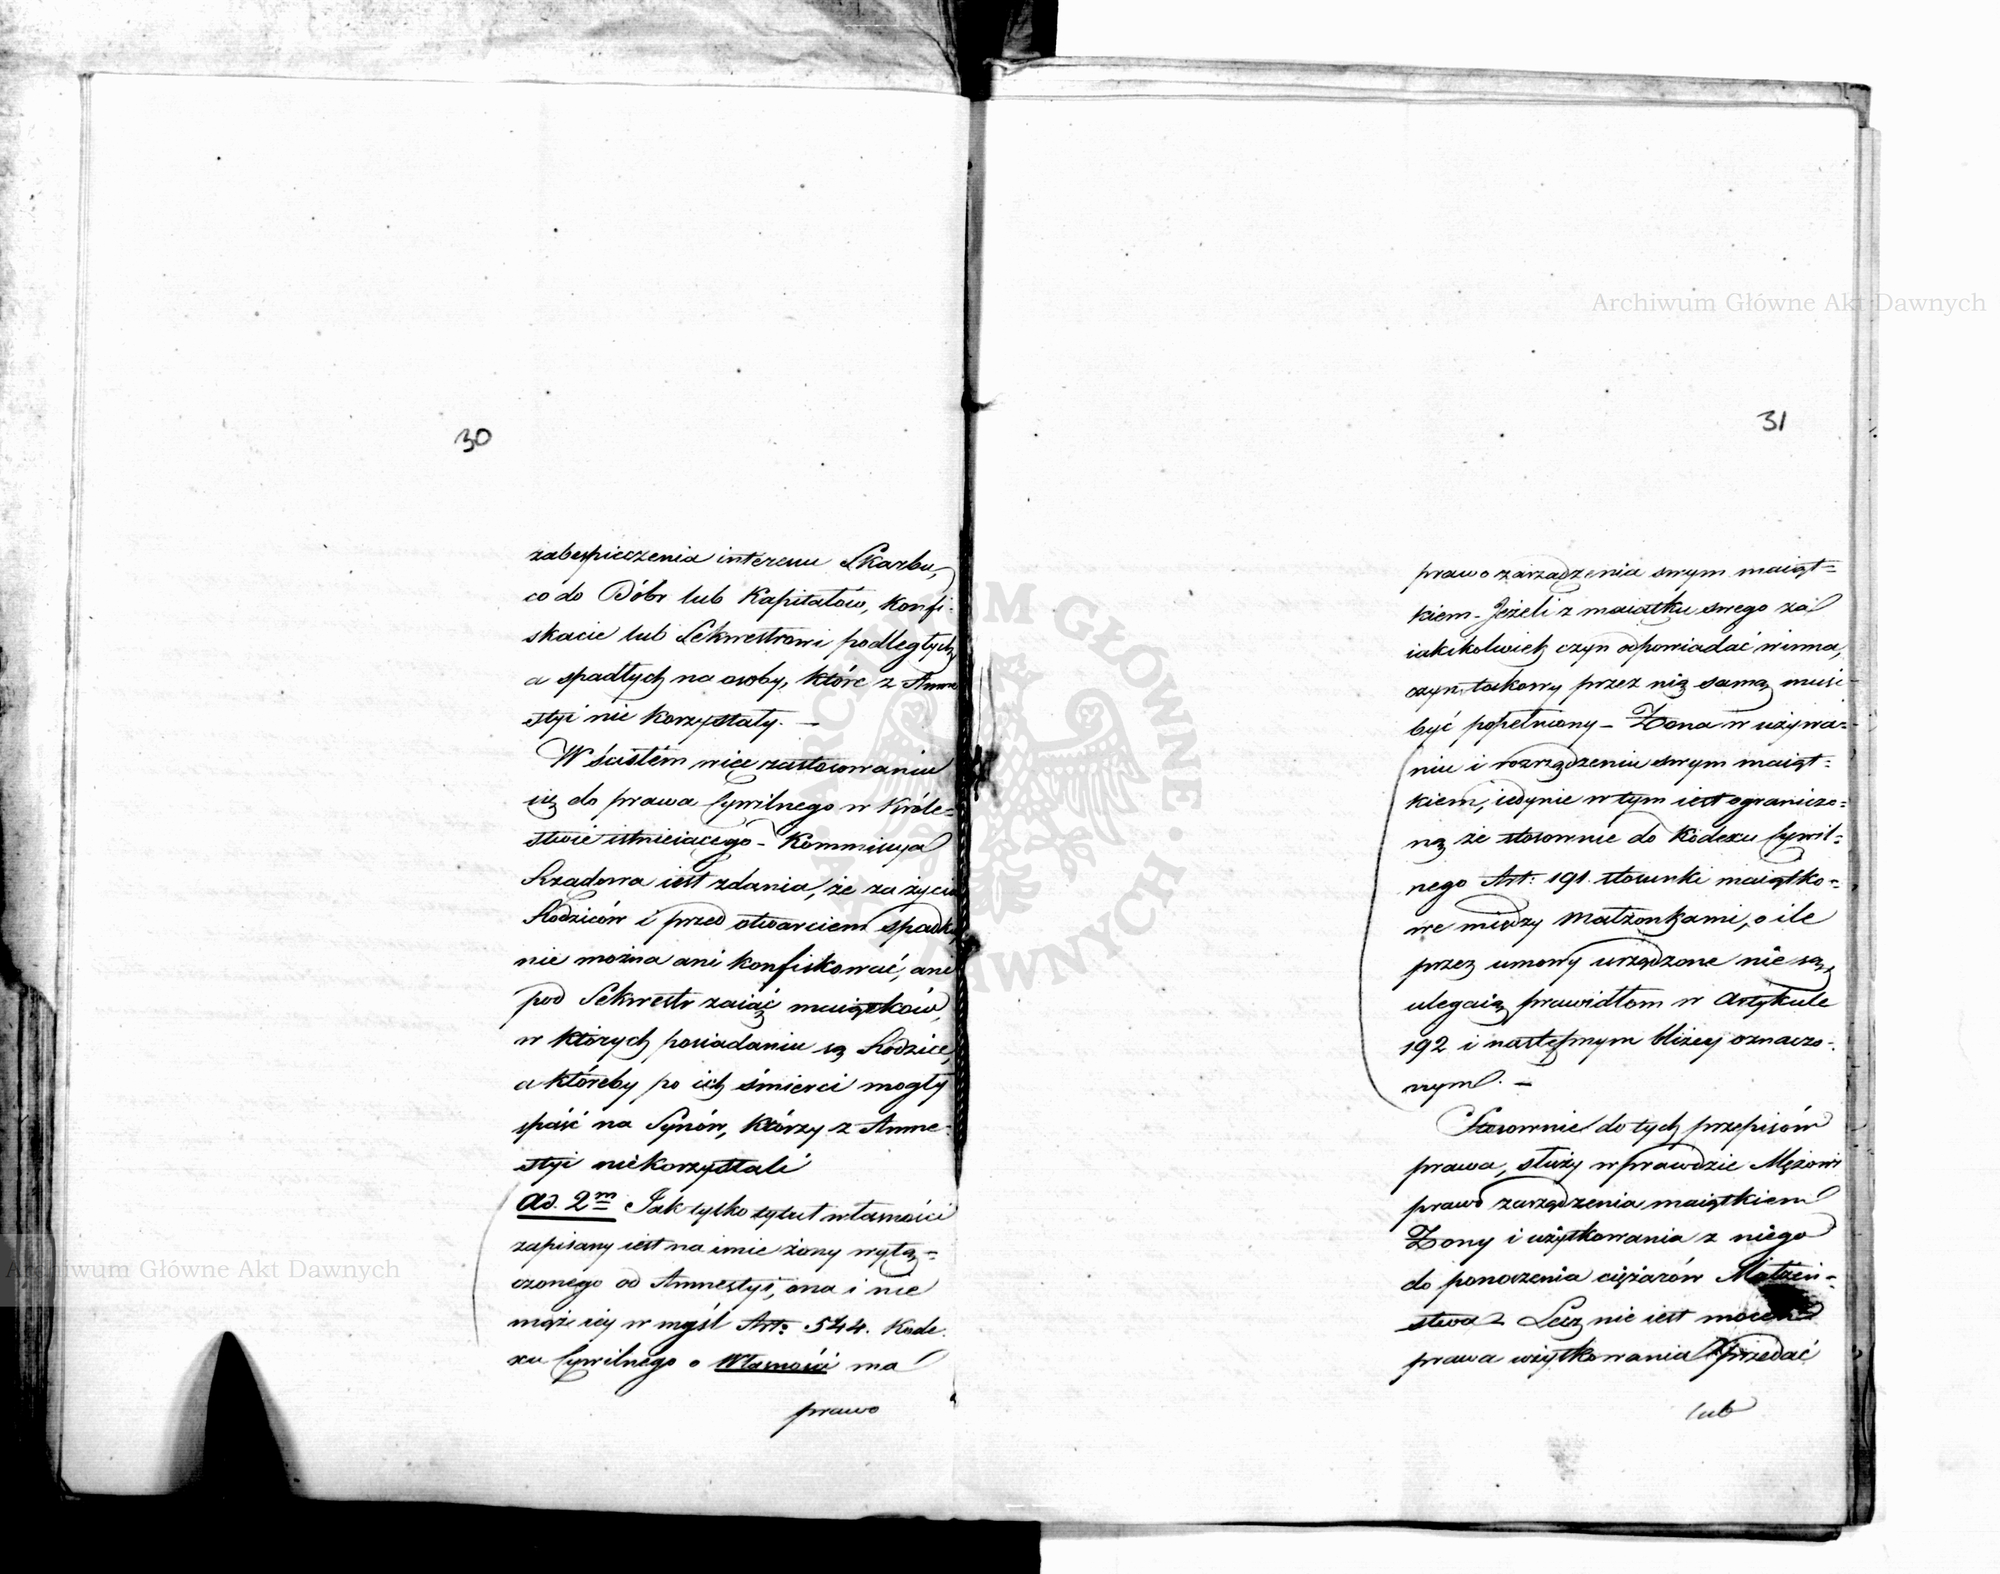 30
zabespieczenia interessu Skarbu,
co do Dóbr lub Kapitałów, Konfi-
skacie lub Sekwestrowi podległych
a spadłych na osoby, które z Amne
styi nie korzystały. —
W ścisłém więc zastosowaniu
się do prawa Cywilnego w Króle-
stwie istnieiącego - Kommissya
Rządowa iest zdania, że za życia
Rodziców i przed otwarciem spadku
nie można ani konfiskować, ani
pod Sekwestr zaiąć maiątków,
w których posiadaniu są Rodzice,
a któreby po ich śmierci mogły
spaść na Synów, którzy z Amne-
styi nie korzystali
ad. 2m Jak tylko tytuł własności
zapisany iest na imie żony wyłą-
czonego od Amnestyi, ona i nie
mąż iéy w myśl Art: 544. Kode-
xu Cywilnego o Własności ma
prawo
31
prawo zarządzenia swym maiąt=
kiem - Jeżeli z maiątku swego za
iakikolwiek czyn odpowiadać winna,
czyn takowy przez nią samą musi
być popełniony - Żona w używa=
niu i rozrządzeniu swym maiąt=
kiem, iedynie w tym iest ograniczo=
ną że stosownie do Kodexu Cywil=
nego Art: 191. stosunki maiątko=
we między Małżonkami, o ile
przez umowy urządzone nie są,
ulegaią prawidłom w Artykule
192 i następnym bliżey oznaczo-
nym. —
Stosownie do tych przepisów
prawa, służy wprawdzie Mężowi
prawo zarządzenia maiątkiem
Żony i użytkowania z niego
do ponoszenia ciężarów Małżeń-
stwa Lecz nie iest mocen
prawa użytkowania sprzedać
lub
Archiwum Główne Akt Dawnych
Archiwum Główne Akt Dawnych
ARCHIWUM GŁÓWNE AKT DAWNYCH